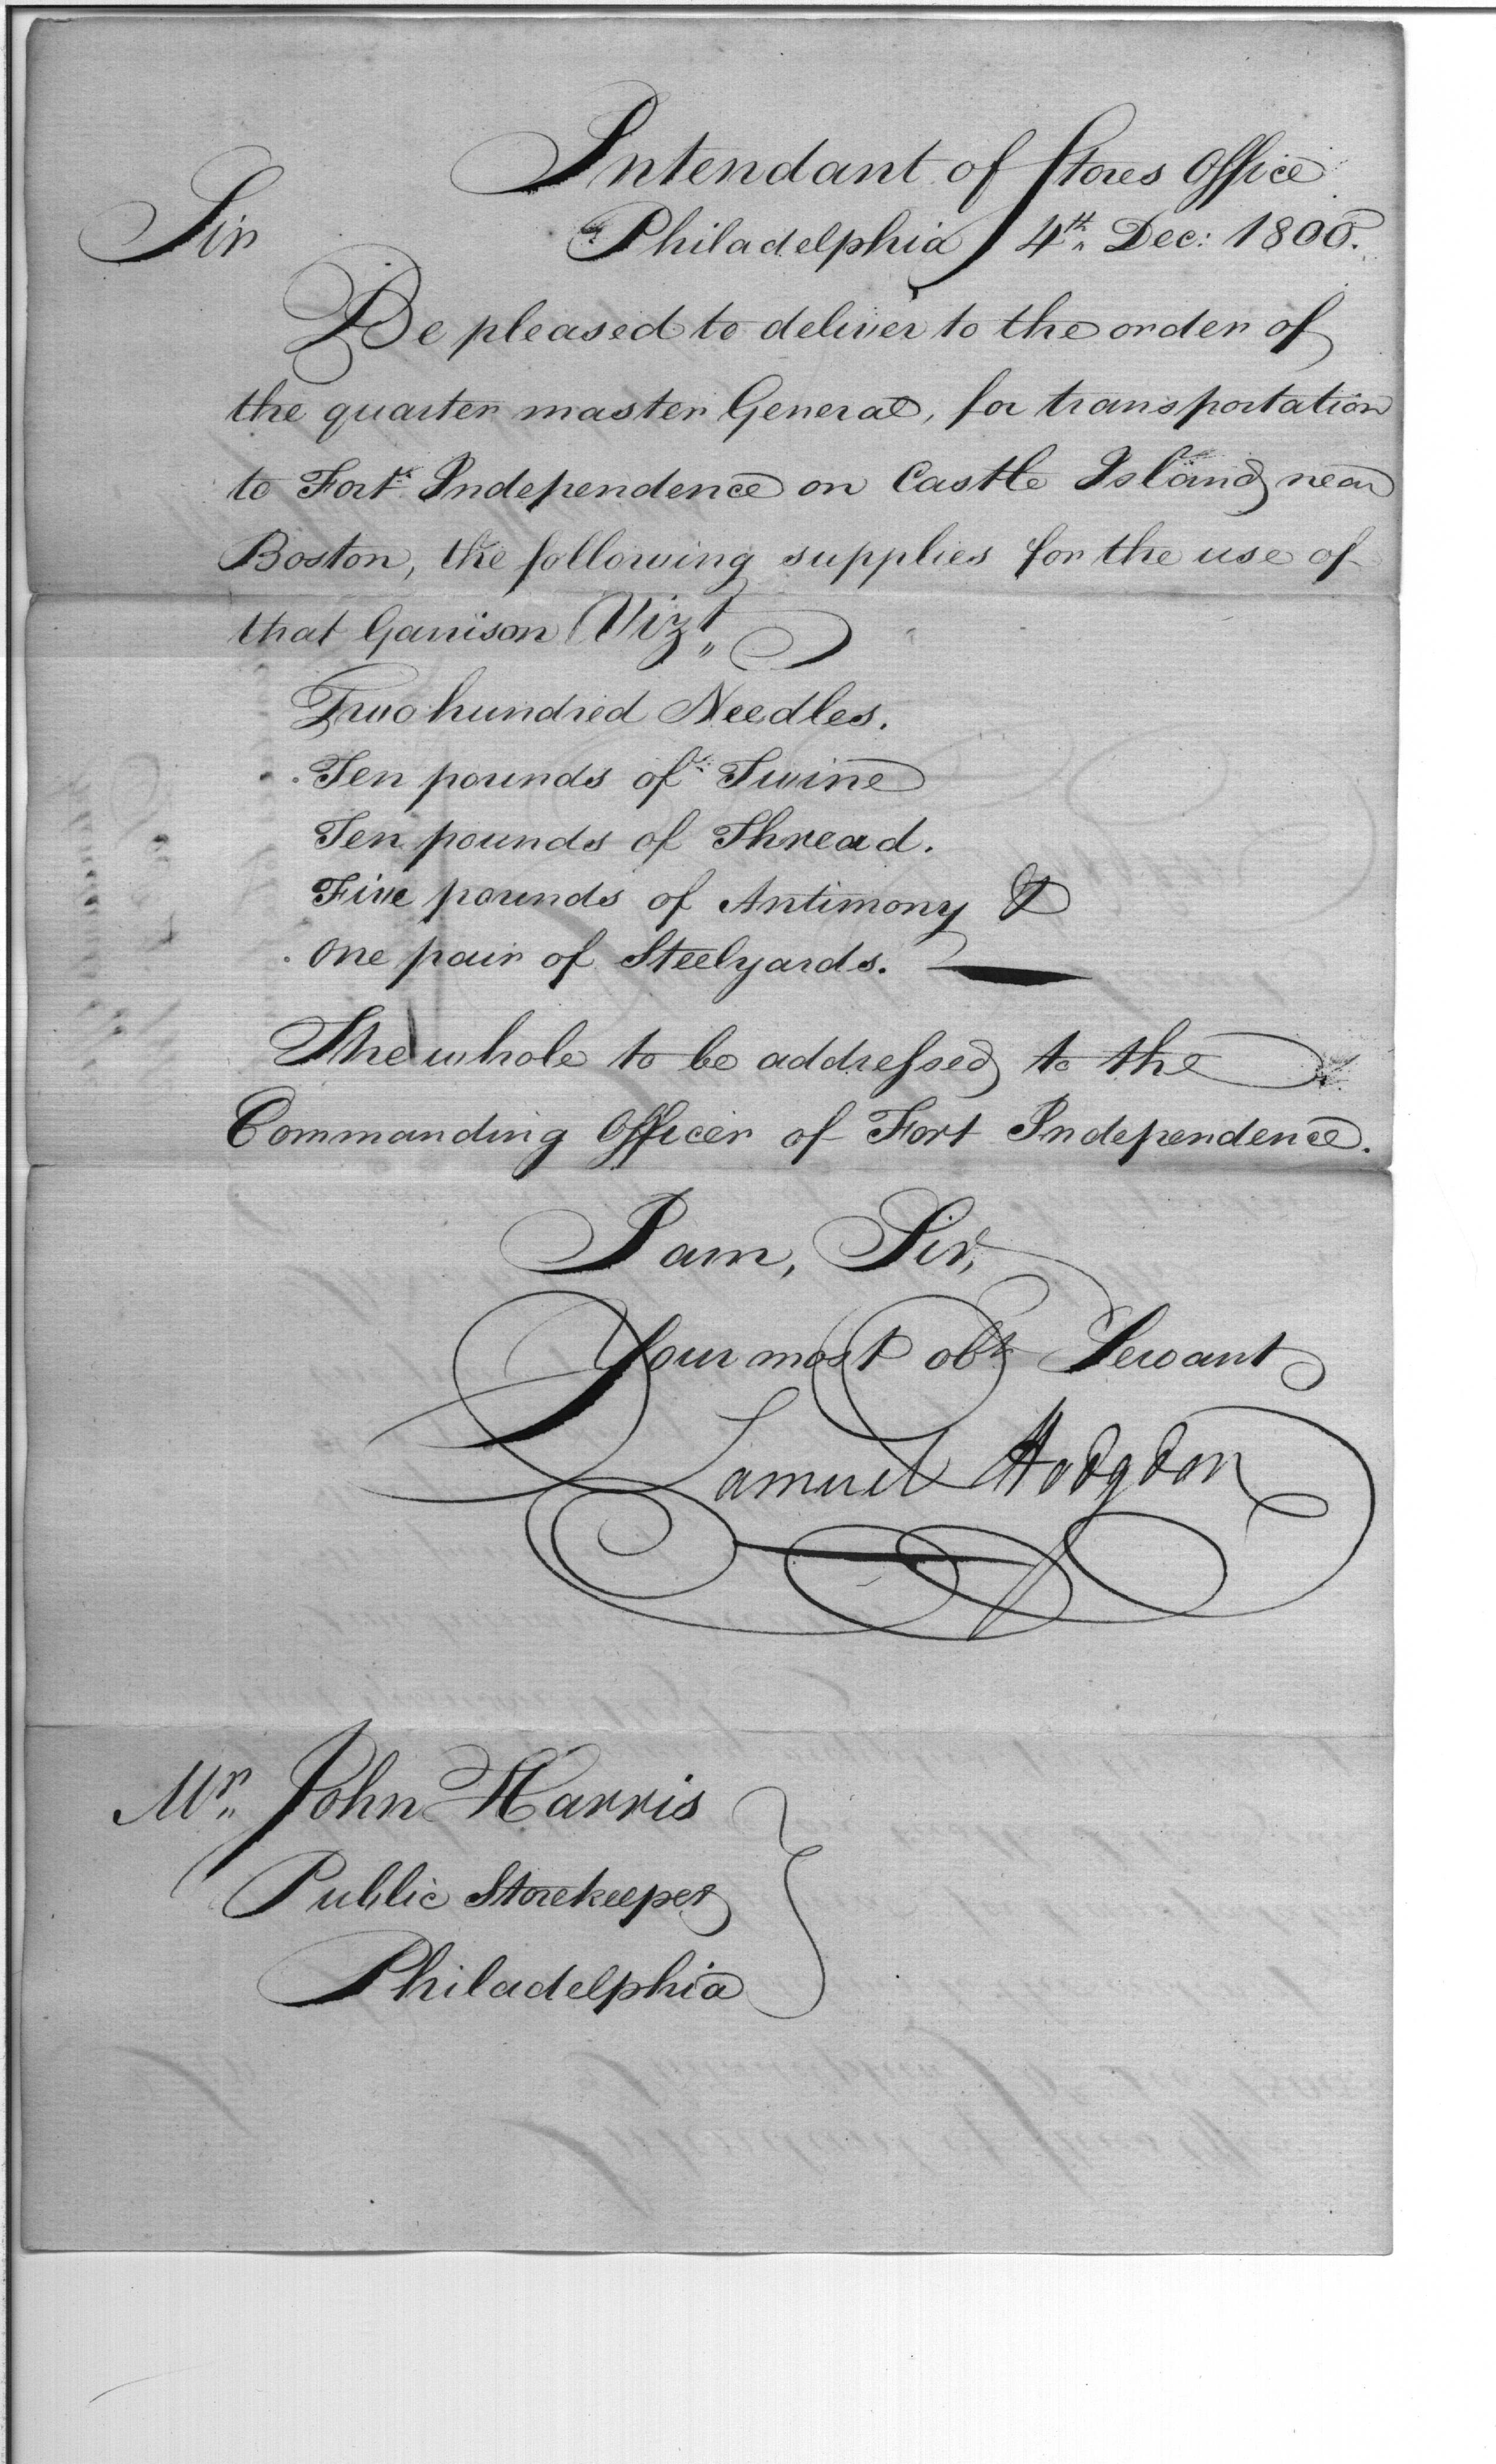 Intendant of Stores Office
Sir Philadelphia 4th Dec: 1800.
Be pleased to deliver to the order of
the quarter master General, for transportation
to Fort Independence on Castle Island near
Boston, the following supplies for the use of
that Garrison Vizt
Two hundred Needles.
Ten pounds of Twine
Ten pounds of Thread.
Five pounds of Antimony &
One pair of Steelyards.
The whole to be addressed to the
Commanding Officer of Fort Independence.
I am, Sir,
Your most obt Servant
Samuel Hodgdon
Mr. John Harris
Public Storekeeper
Philadelphia